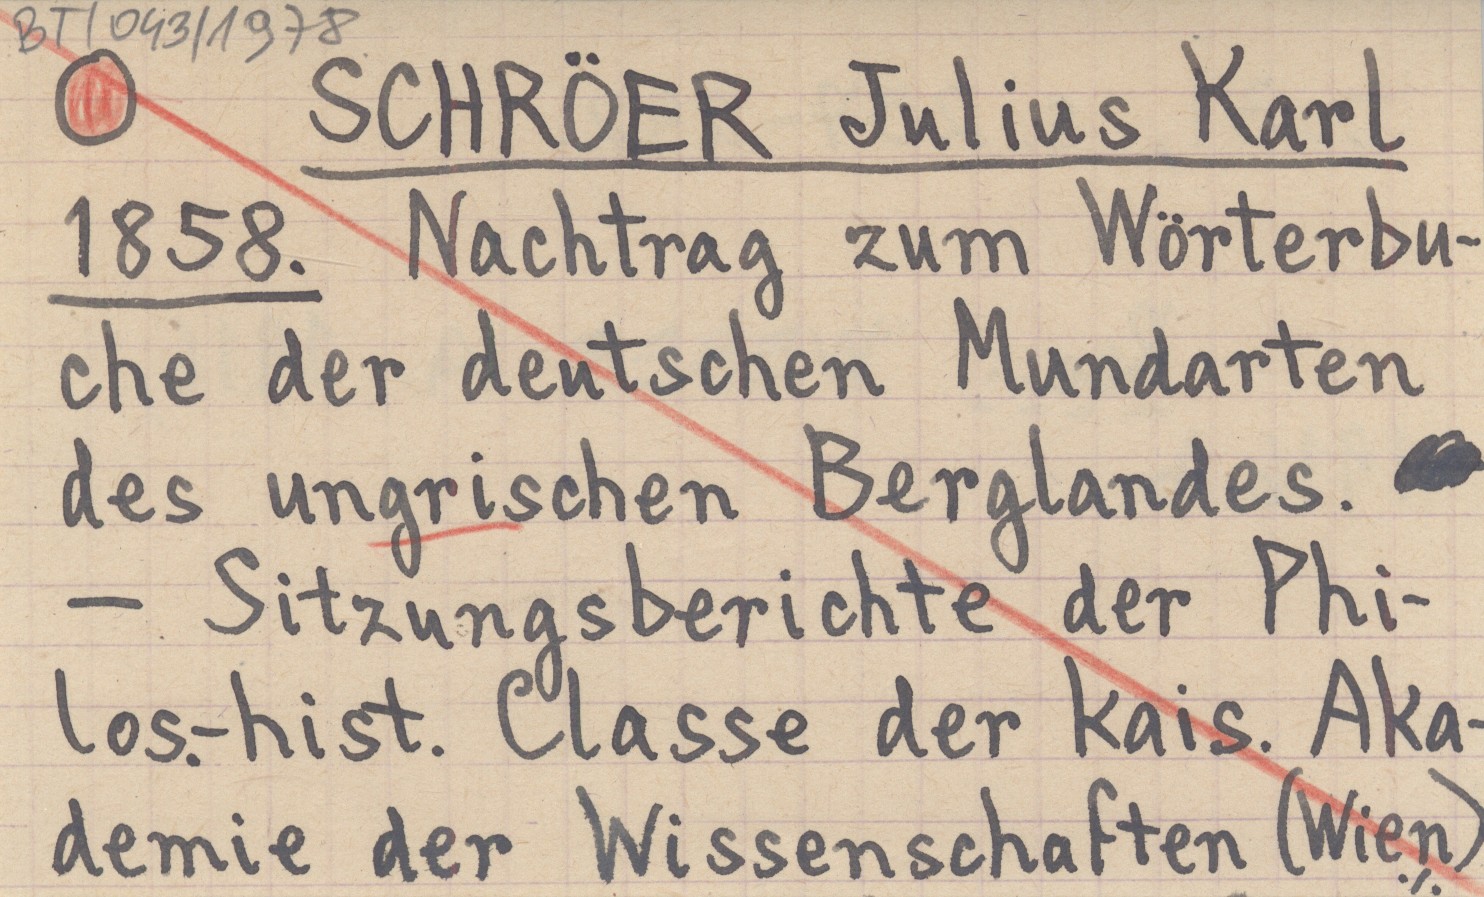 BT/043/1978
SCHRÖER Julius Karl
1858. Nachtrag zum Wörterbu-
che der deutschen Mundarten
des ungrischen Berglandes.
— Sitzungsberichte der Phi-
los.-hist. Classe der kais. Aka-
demie der Wissenschaften (Wien)
./.